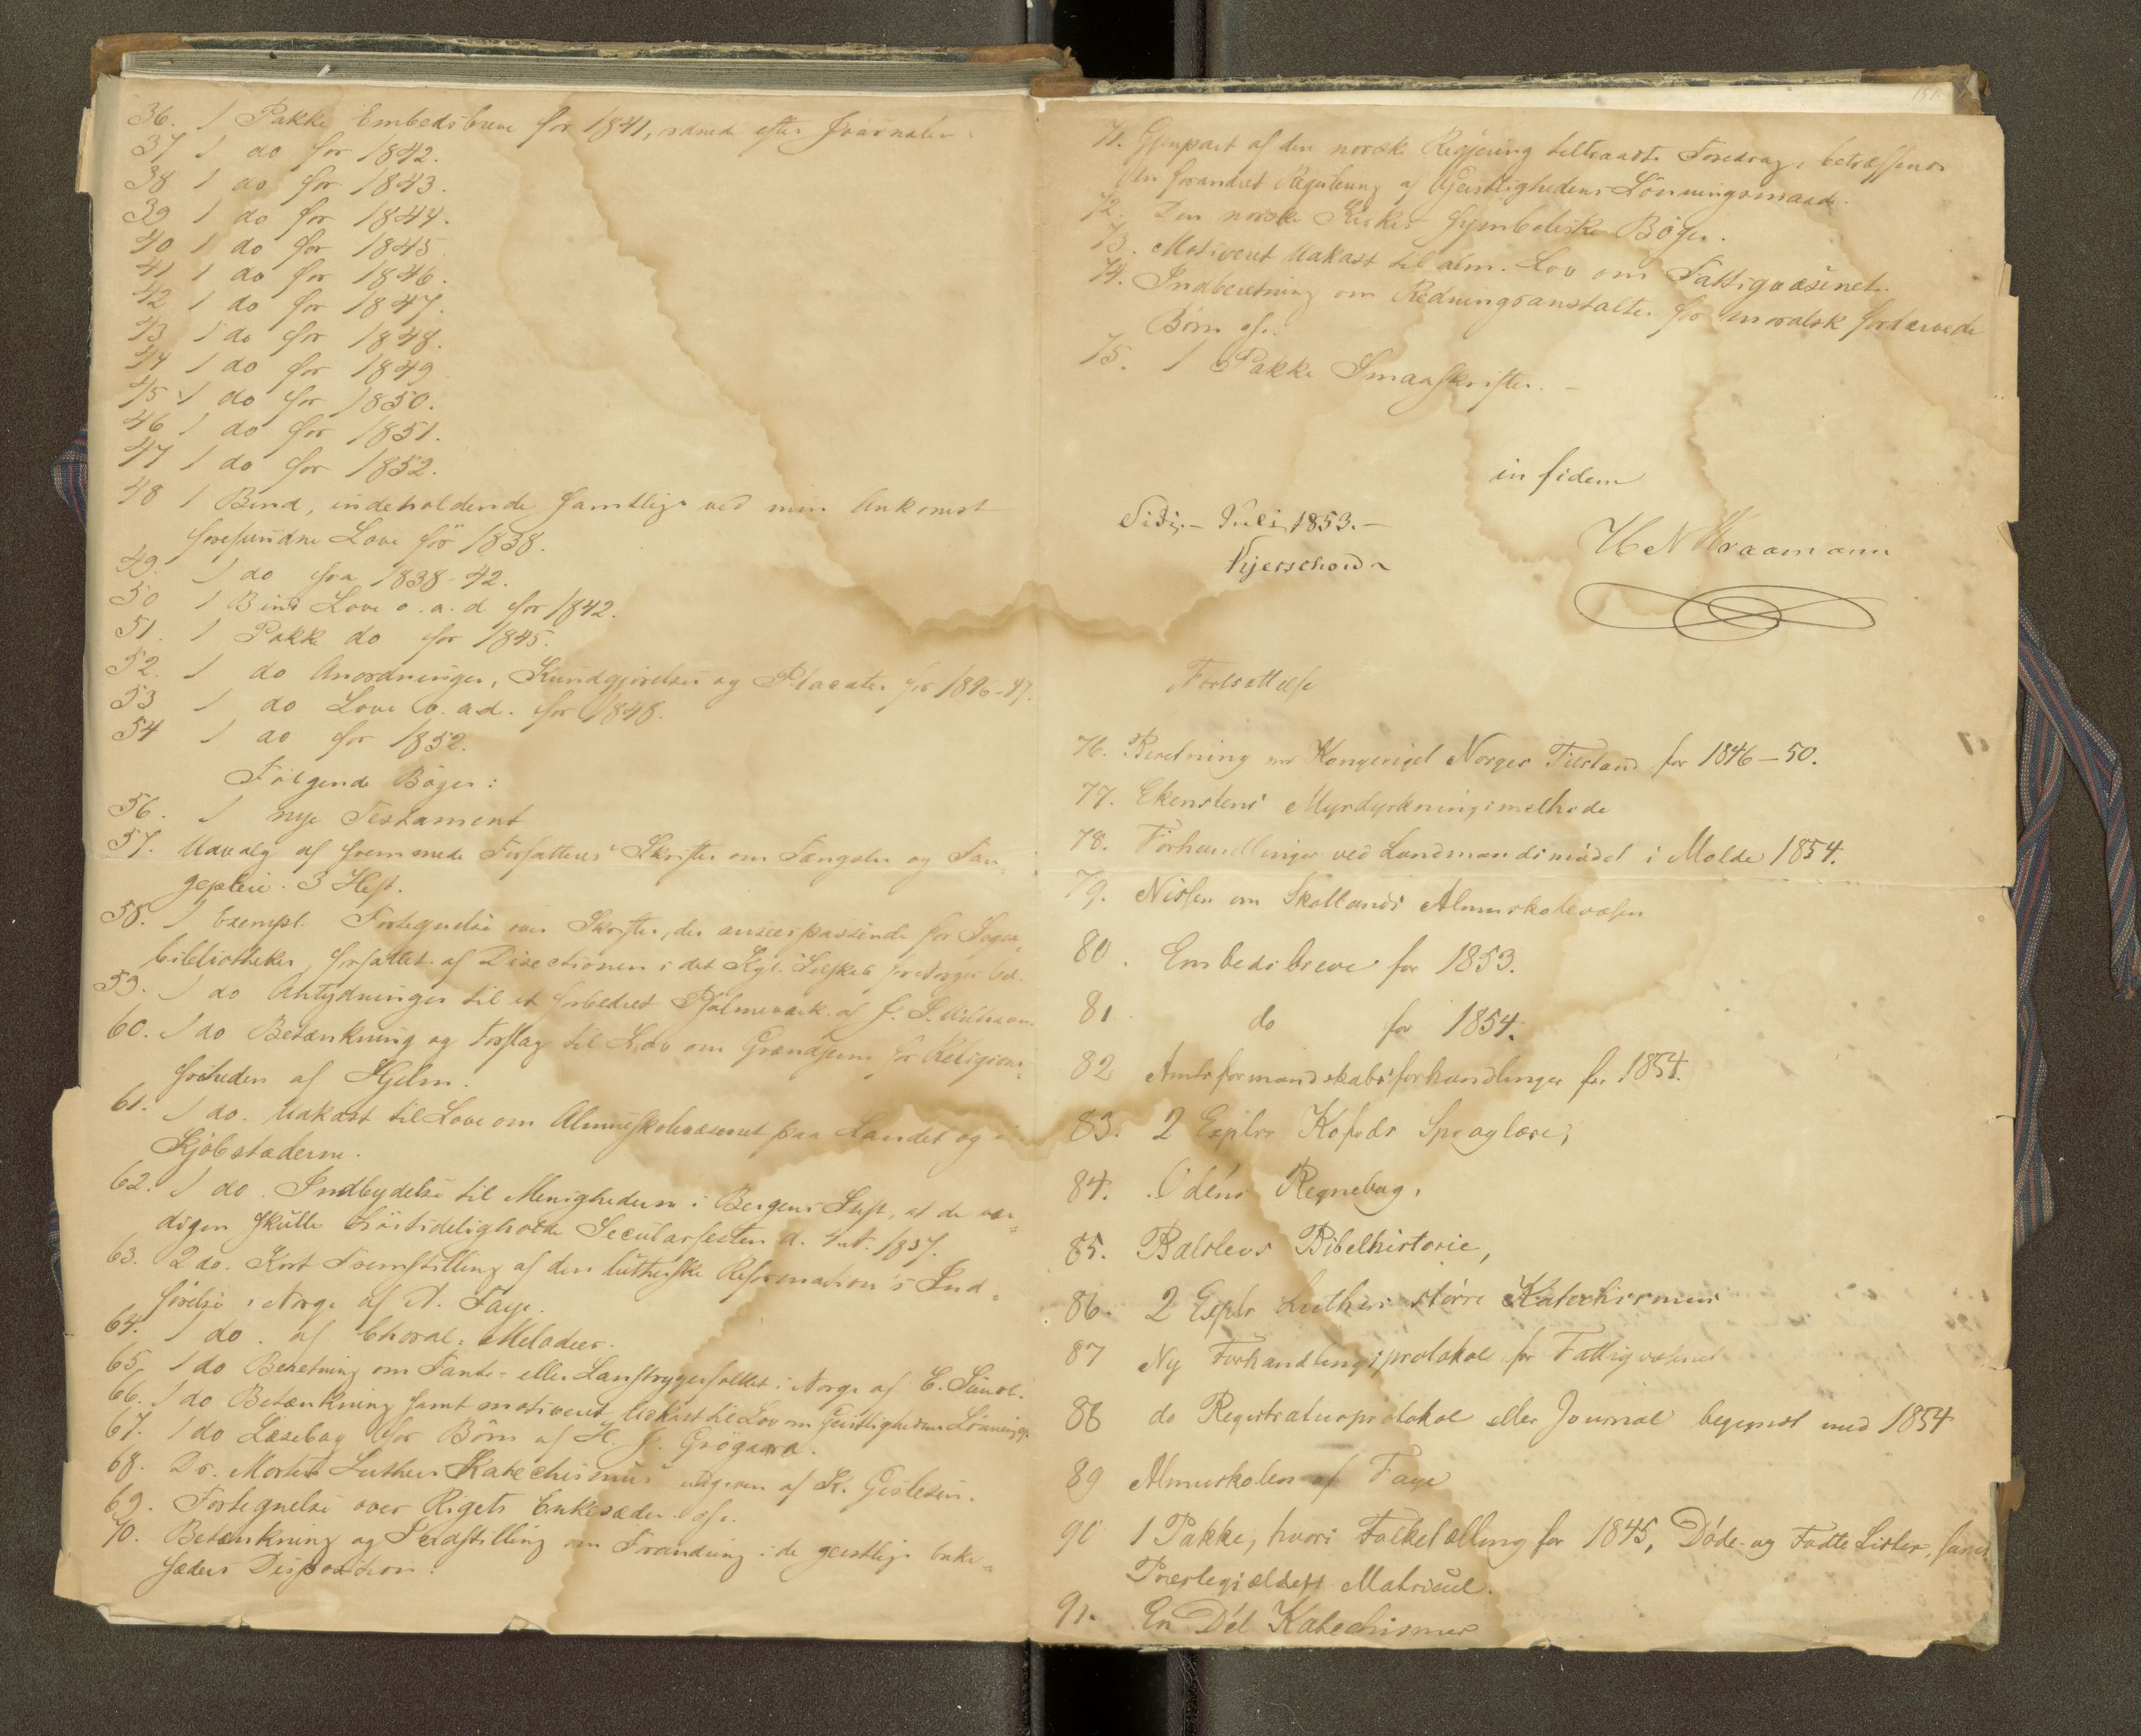 36. 1 Pakke Embedsbreve for 1841, ordnede efter Journalen.
37 1 do for 1842.
38 1 do for 1843.
39 1 do for 1844.
40 1 do for 1845
41 1 do for 1846.
42 1 do for 1847.
43 1 do for 1848.
44 1 do for 1849
45 1 do for 1850.
46 1 do for 1851.
47 1 do for 1852.
48 1 Bind, indeholdende samtlige ved min Ankomst
forefundne Love før 1838.
49. 1 do fra 1838-42.
50 1 Bind Love o.a.d for 1842.
51. 1 Pakke do for 1845.
52. 1 do Anordninger, Kundgjørelser og Placater for 1846-47.
53 1 do Love o.a.d. for 1848.
54 1 do for 1852.
Følgende Bøger:
56. 1 nye Testament
57. Udvalg af fremmede Forfatteres Skrifter om Fængsler og Fan-
gepleie. 3 Heft.
58. 1 Exempl. Fortegnelse over Skrifter, der ansees passende for Sogne-
bibliotheker, forfattet af Directionen i det Kgl. Selskab for Norges Vel.
59. 1 do Antydninger til et forbedret Psalmeværk af
60. 1 do Betænkning og Forslag til Lov om Grændserne for Religions-
friheden af Hjelm.
61. 1 do. Udkast til Love om Almueskolevæsenet paa Landet og i
Kjøbstæderne.
62. 1 do. Indbydelse til Menighederne i Bergens Stift, at de vær-
digen skulle høitideligholde Secularfesten d. 1837.
63. 2 do. Kort Fremstilling af den lutherske Reformation's Ind-
førelse i Norge af A. Faye.
64. 1 do. af Choral-Melodier.
65. 1 do Beretning om Fante- eller Landstrygerfolket i Norge af E. Sundt.
66. 1 do Betænkning samt motiveret Udkast til Lov om Geistlighedens Lønning
67. 1 do Læsebog for Børn af H. J. Grøgaard.
68. Dr. Morten Luthers Katechismus udgiven af K. Gislesen.
69. Fortegnelse over Rigets Enkesæder ofv.
70. Betænkning og Indstilling om Forandring i de geistlige Enke-
sæders Disposition.
151.
71. Gjenpart af den norske Regjering tiltraadte Foredrag, betræffende
en forandret Regulering af Geistlighedens Lønningsmaade.
72. Den norske Kirkes symboliske Bøger.
73. Motiveret Udkast til alm. Lov om Fattigvæsenet.
74. Indberetning om Redningsanstalter for moralsk fordærvede
Børn ofv.
75. 1 Pakke Smaaskrifter. -
in fidem
Juli 1853.-
H N Kraamann
Kjerschow
Fortsættelse
76. Beretning om Kongeriget Norges Tilstand for 1846-50.
77. Ekenstens Myrdyrkningsmethode
78. Forhandlinger ved Landmandsmødet i Molde 1854.
79. Nissen om Skotlands Almueskolevæsen
80. Embedsbreve for 1853.
81 do for 1854.
82 Amtsformandskabsforhandlinger for 1854.
83. 2 Explrs Kofods Sproglære,
84. Odéns Regnebog,
85. Balslevs Bibelhistorie,
86. 2 Explr Luthers større Katechismus
87 Ny Forhandlingsprotokol for Fattigvæsnet
88 do Registraturprotokol eller Journal begyndt med 1854
89 Almueskolen af Faye
90 1 Pakke, hvori Folketælling for 1845, Døde- og Fødte Lister, samt
Præstegjældets Matricul.
91. En Del Katechismer